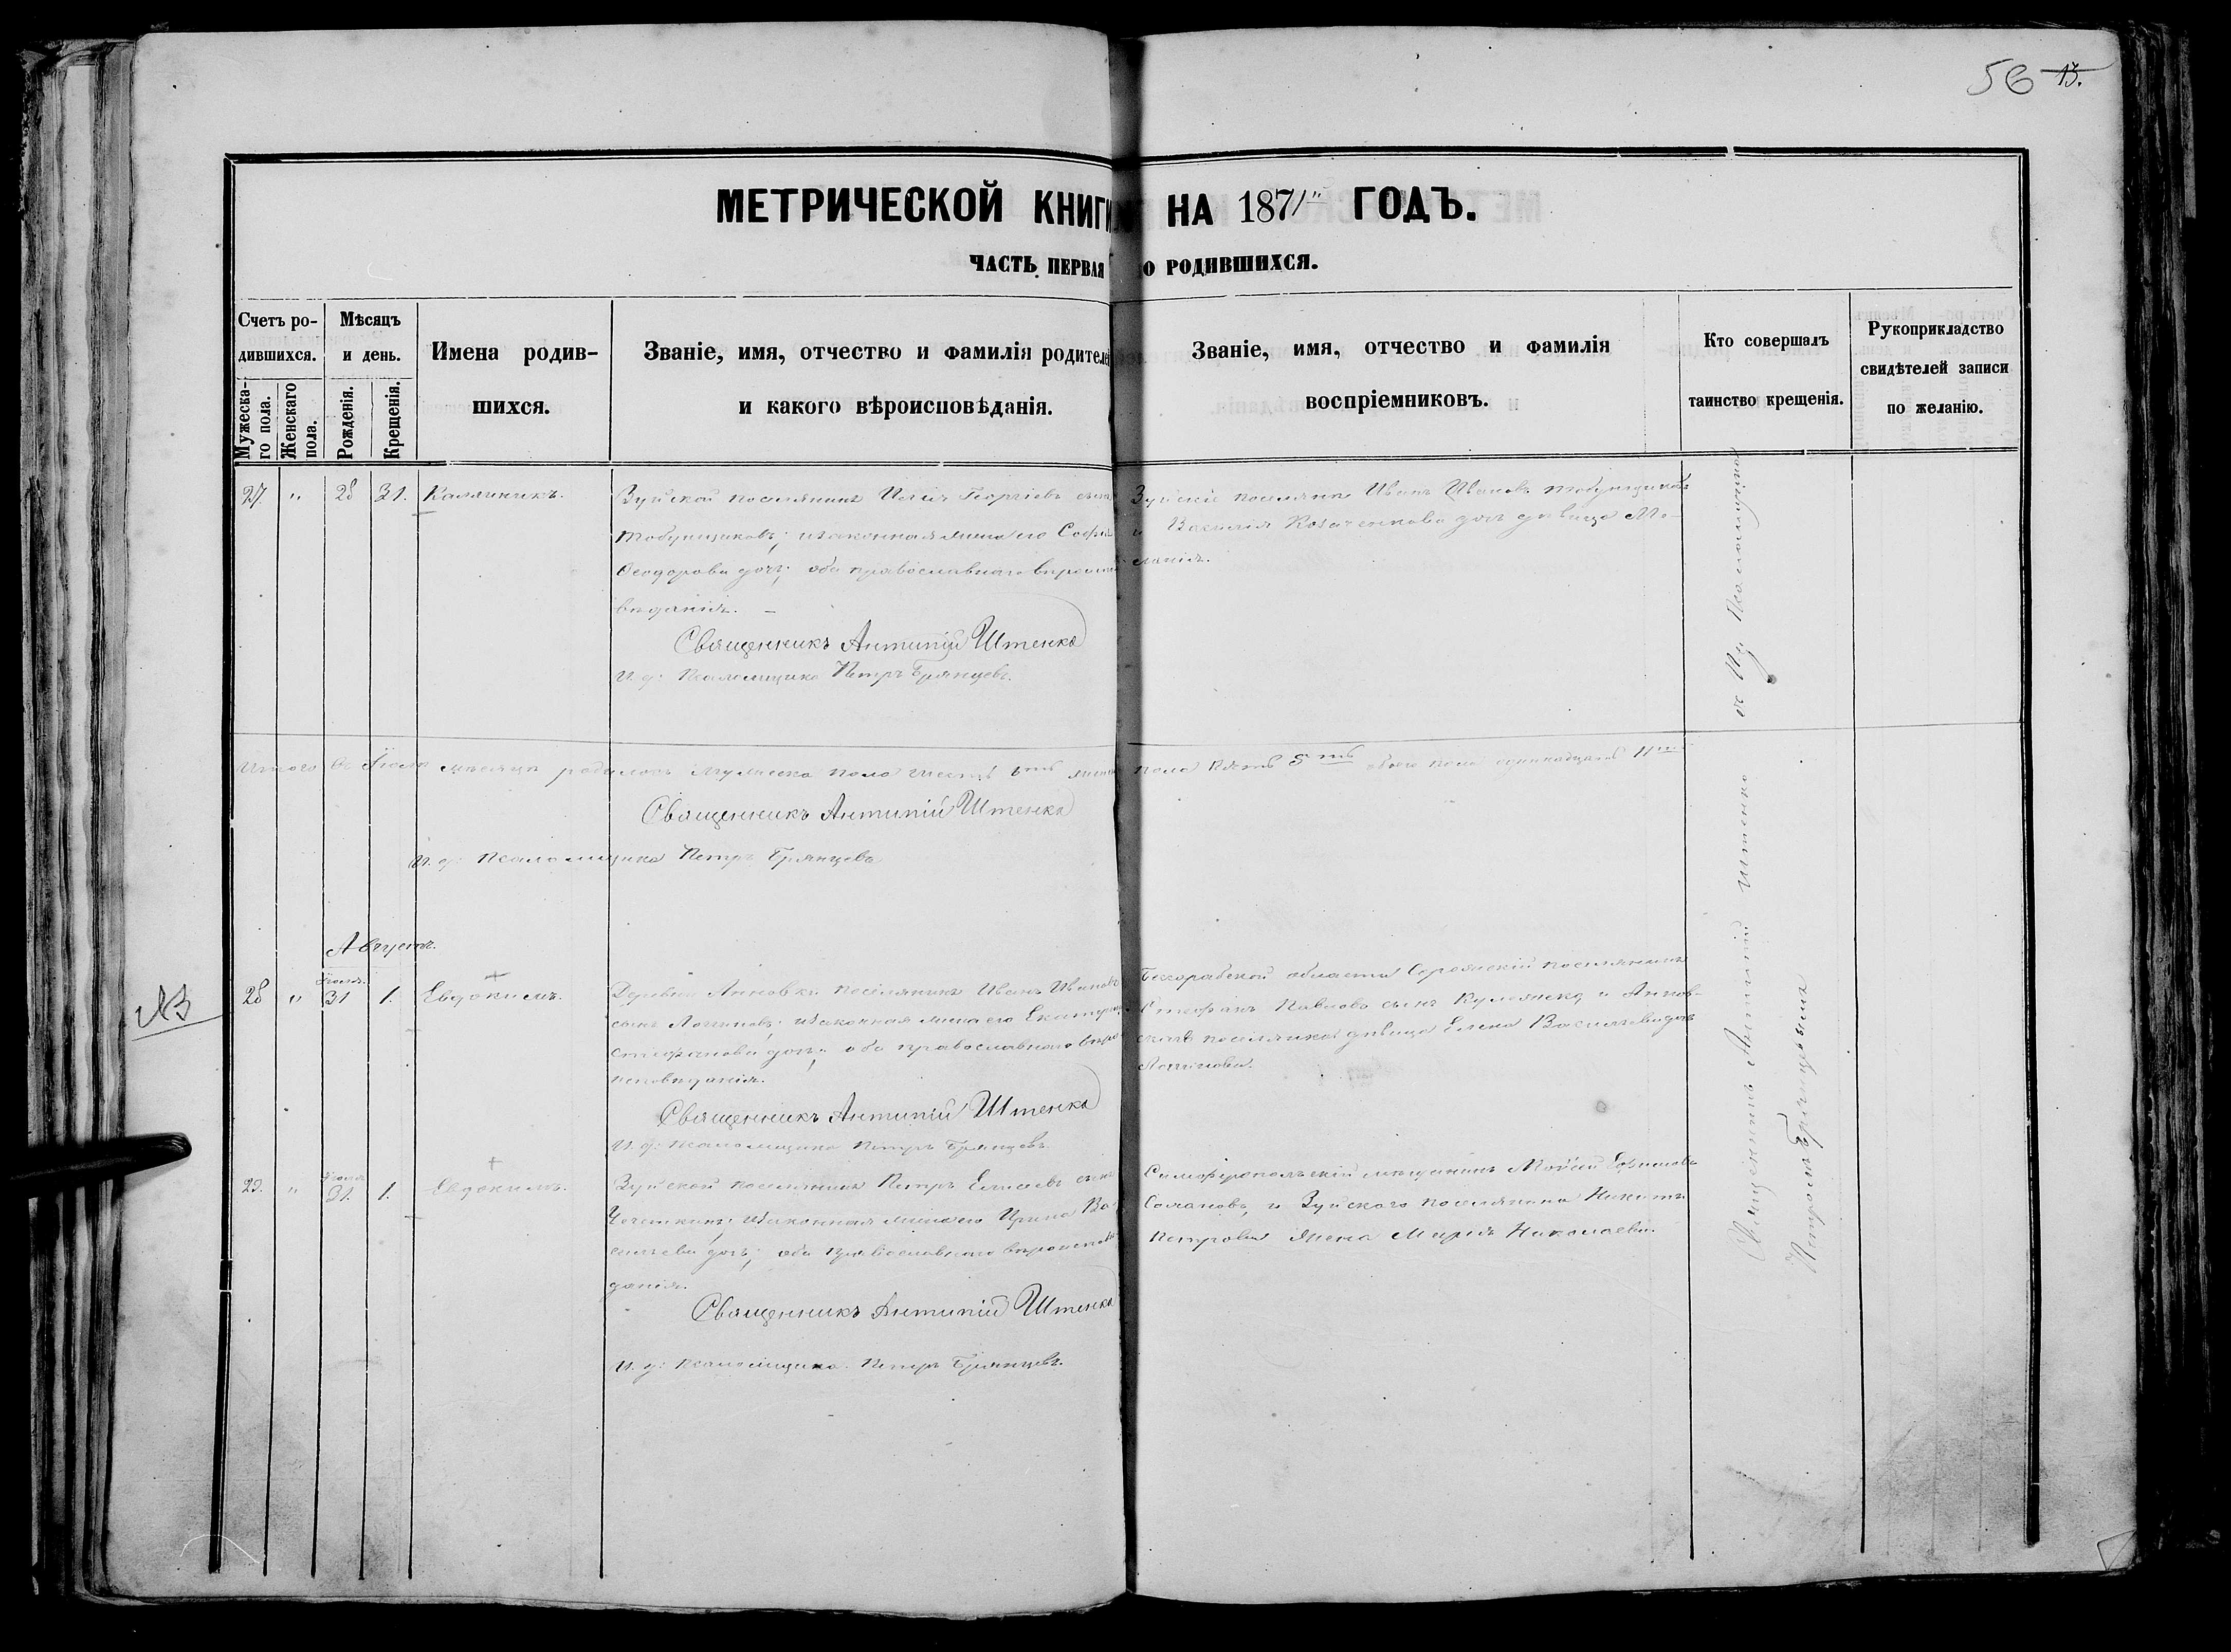 56 13.
МЕТРИЧЕСКОЙ КНИГИ НА 1871 ГОДЪ.
ЧАСТЬ ПЕРВАЯ О РОДИВШИХСЯ.
Счетъ ро-
дившихся.
Мужеска-
го пола.
Женскаго
пола.
Мѣсяцъ
и день.
Рожденія.
Крещенія.
Имена родив-
шихся.
Званіе, имя, отчество и фамилія родителей
и какого вѣроисповѣданія.
Званіе, имя, отчество и фамилія
воспріемниковъ.
Кто совершалъ
таинство крещенія.
Рукоприкладство
свидѣтелей записи
по желанію.
27. " 28 31. Каллиникъ.
Зуйской поселянинъ Илія Георгіевъ сынъ
Табунщиковъ; и законная жена его Софія
Ѳеодорова дочь; оба православнаго вѣроиспо-
вѣданія. —
Священникъ Антипій Штенко
И. д: Псаломщика Петръ Брянцевъ.
Зуйскіе поселяне Иванъ Ивановъ Табунщиковъ
и Василія Козаченкова дочь дѣвица Ме-
ланія.
Итого въ Іюлѣ мѣсяцѣ родилось мужеска пола шесть 6ть женска
пола пять 5ть обоего пола одинадцать 11ть
Священникъ Антипій Штенко
И. д: Псаломщика Петръ Брянцевъ
Августъ.
28 " Іюля 31 1. Евдокимъ.
Деревни Анновки поселянинъ Иванъ Ивановъ
сынъ Логиновъ; и законная жена его Екатерина
Стефанова дочь; оба православнаго вѣро-
исповѣданія.
Священникъ Антипій Штенко
И. д: Псаломщика Петръ Брянцевъ.
Бессарабской области поселянинъ
Стефанъ Павловъ сынъ и Аннов-
ская поселянка дѣвица Елена Васильева дочь
Логинова.
29. " Іюля 31. 1. Евдокимъ.
Зуйской поселянинъ Петръ Елисеевъ сынъ
и законная жена его Ирина Ва-
сильева дочь; оба православнаго вѣроисповѣ-
данія.
Священникъ Антипій Штенко
И. д: Псаломщика Петръ Брянцевъ.
Симферопольскій мѣщанинъ Мойсей Ефимовъ
и Зуйскаго поселянина Никиты
Петрова жена Марія Николаева.
Священникъ Антипій Штенко
съ Ид Псаломщика
Петромъ Брянцевымъ